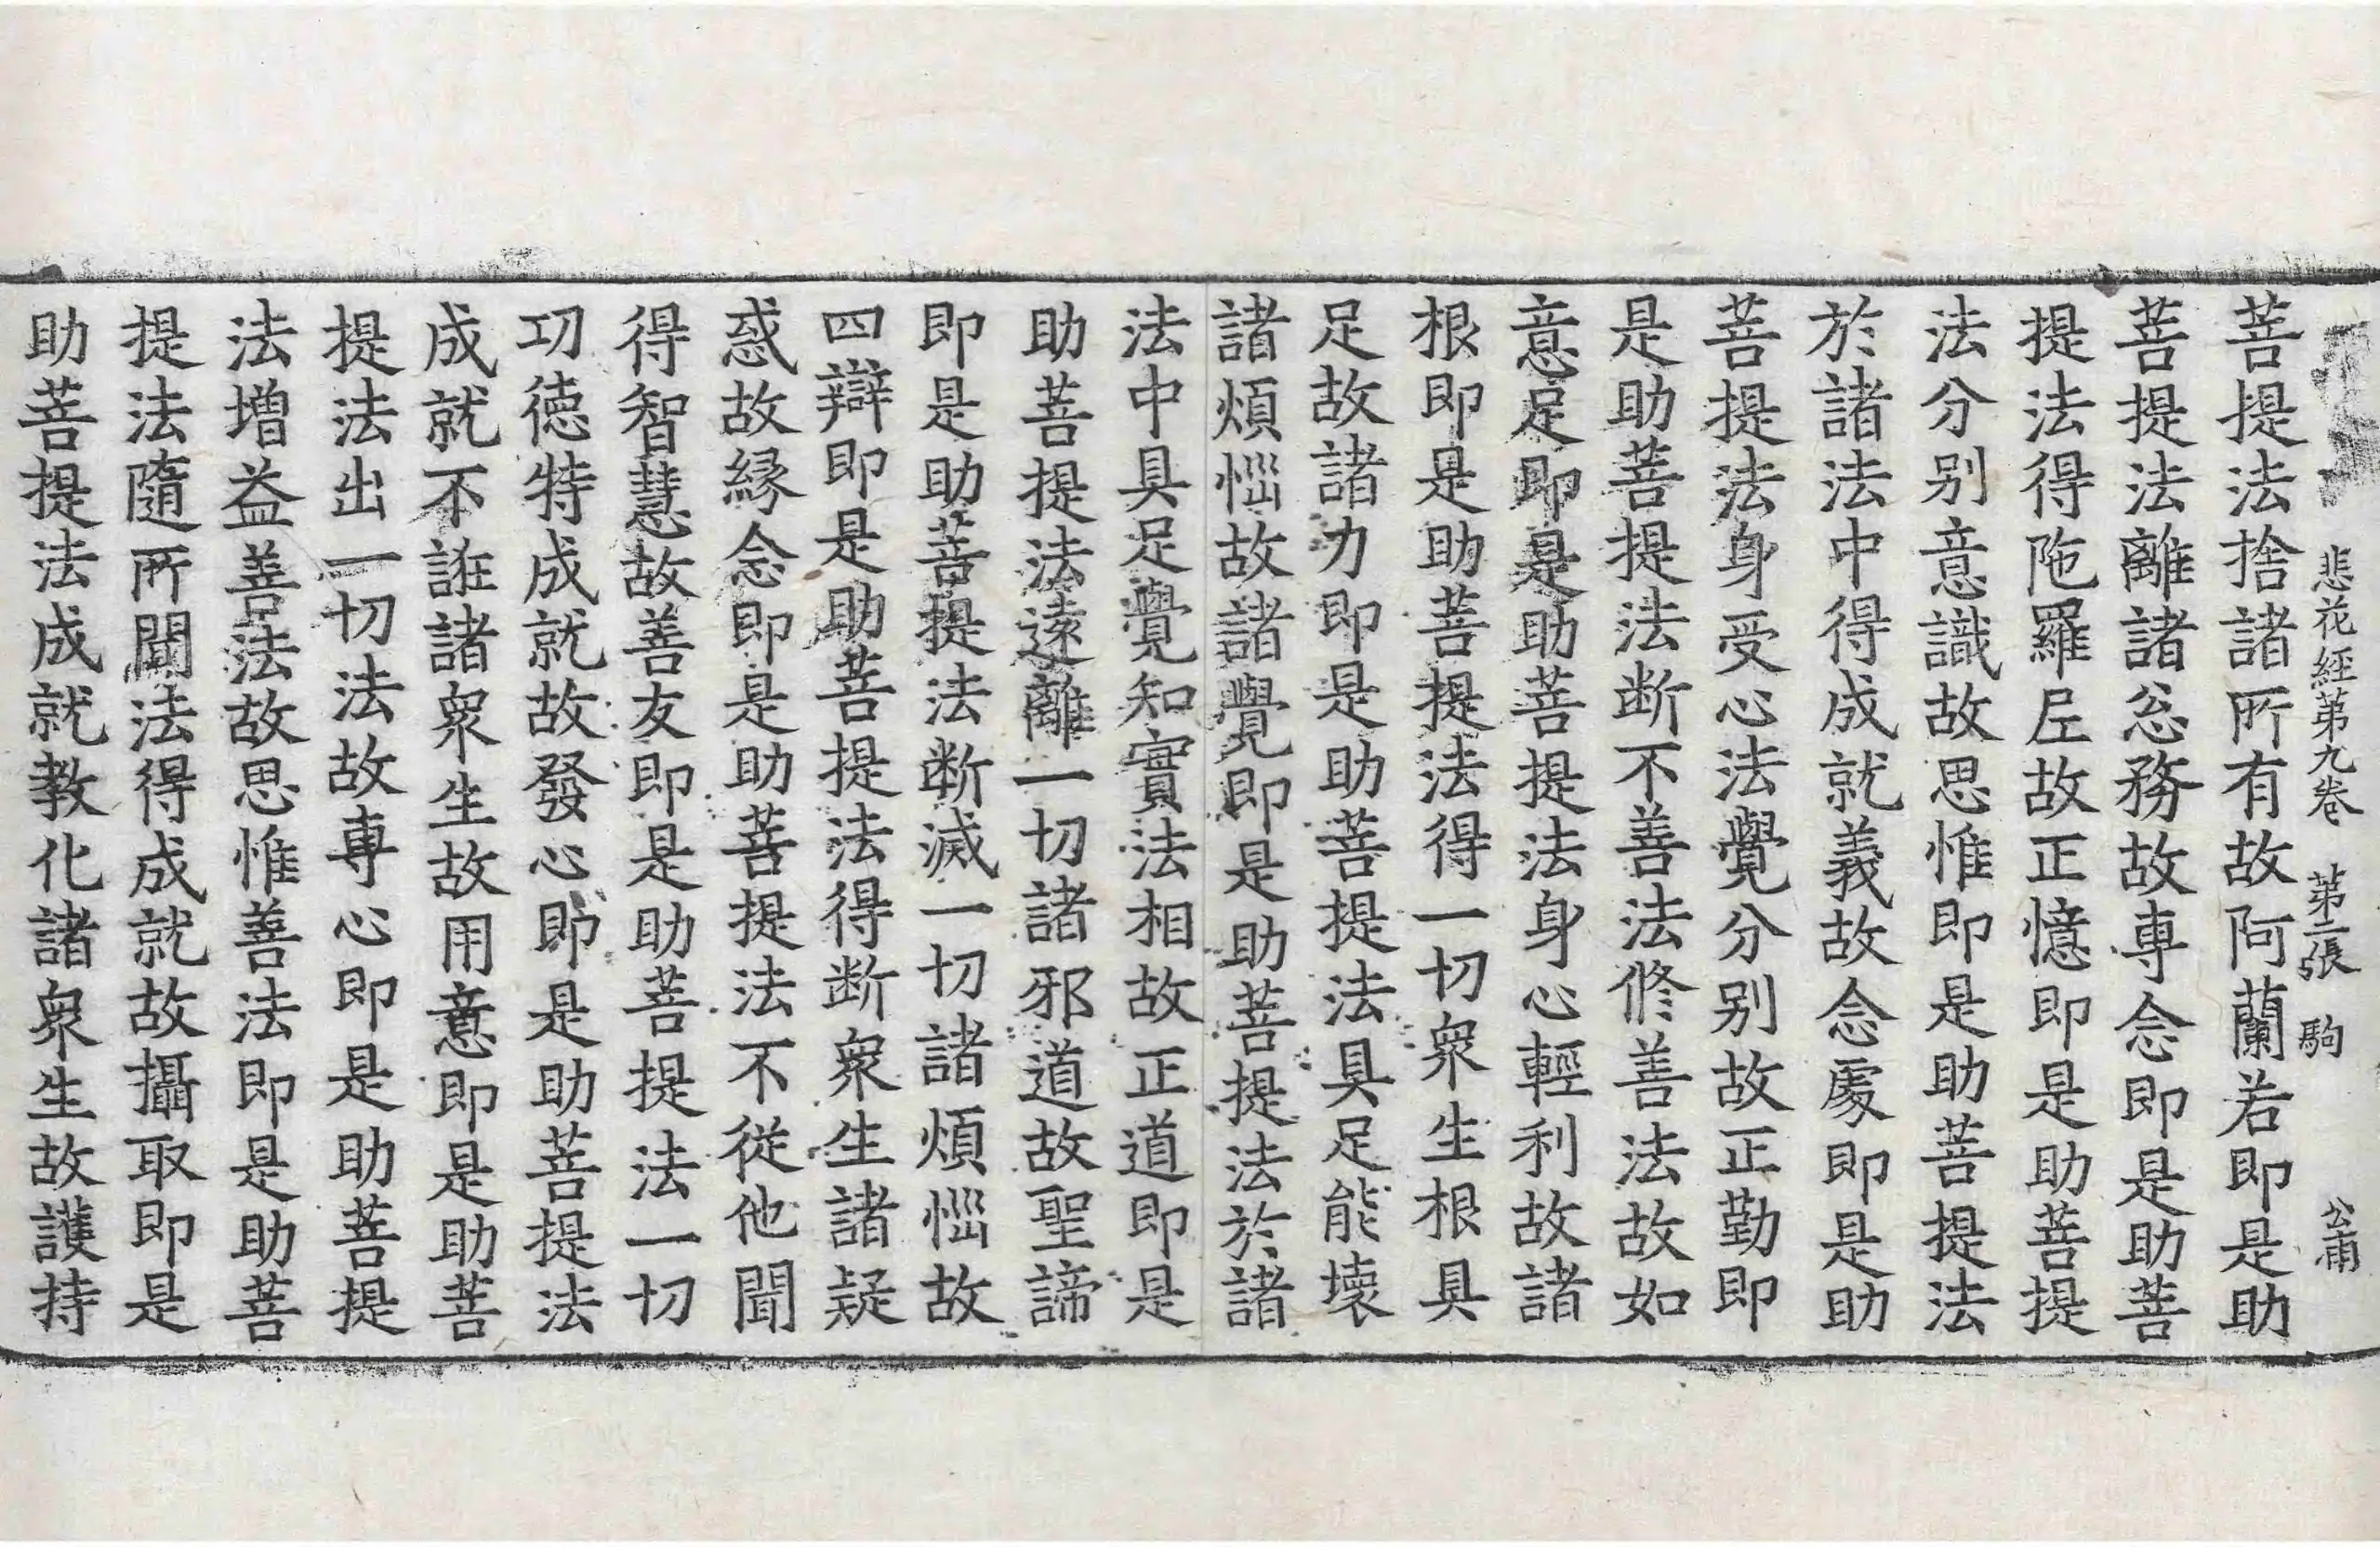 悲花經第九卷 第二張 駒 公甫
菩提法捨諸所有故阿蘭若即是助
菩提法離諸忩務故專念即是助菩
提法得陁羅𡰱故正憶即是助菩提
法分别意識故思惟即是助菩提法
於諸法中得成就義故念處即是助
菩提法身受心法覺分别故正勤即
是助菩提法断不善法修善法故如
意足即是助菩提法身心輕利故諸
根即是助菩提法得一切衆生根具
足故諸力即是助菩提法具足能壞
諸煩惱故諸覺即是助菩提法於諸
法中具足覺知實法相故正道即是
助菩提法遠離一切諸邪道故聖諦
即是助菩提法断滅一切諸煩惱故
四辯即是助菩提法得断衆生諸疑
惑故緣念即是助菩提法不從他聞
得智慧故善友即是助菩提法一切
功德特成就故發心即是助菩提法
成就不誑諸衆生故用意即是助菩
提法出一切法故專心即是助菩提
法增益善法故思惟善法即是助菩
提法隨所聞法得成就故攝取即是
助菩提法成就教化諸衆生故護持